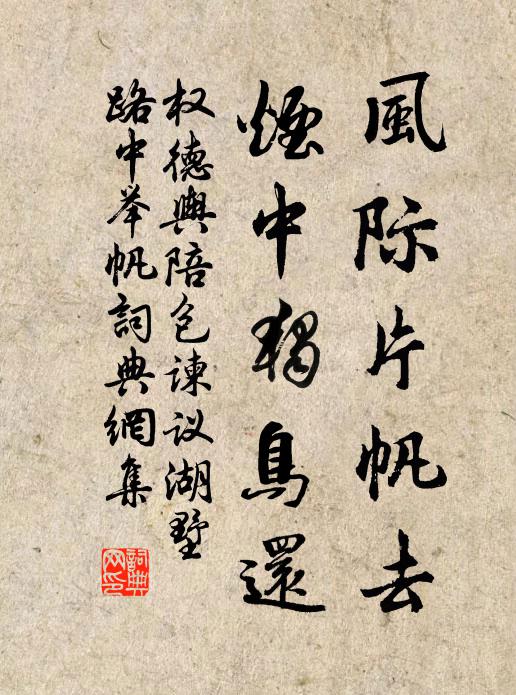 風际片帆去
煙中獨鳥還
权德輿陪包谏议湖墅
路中举帆詞典網集
詞典
网印